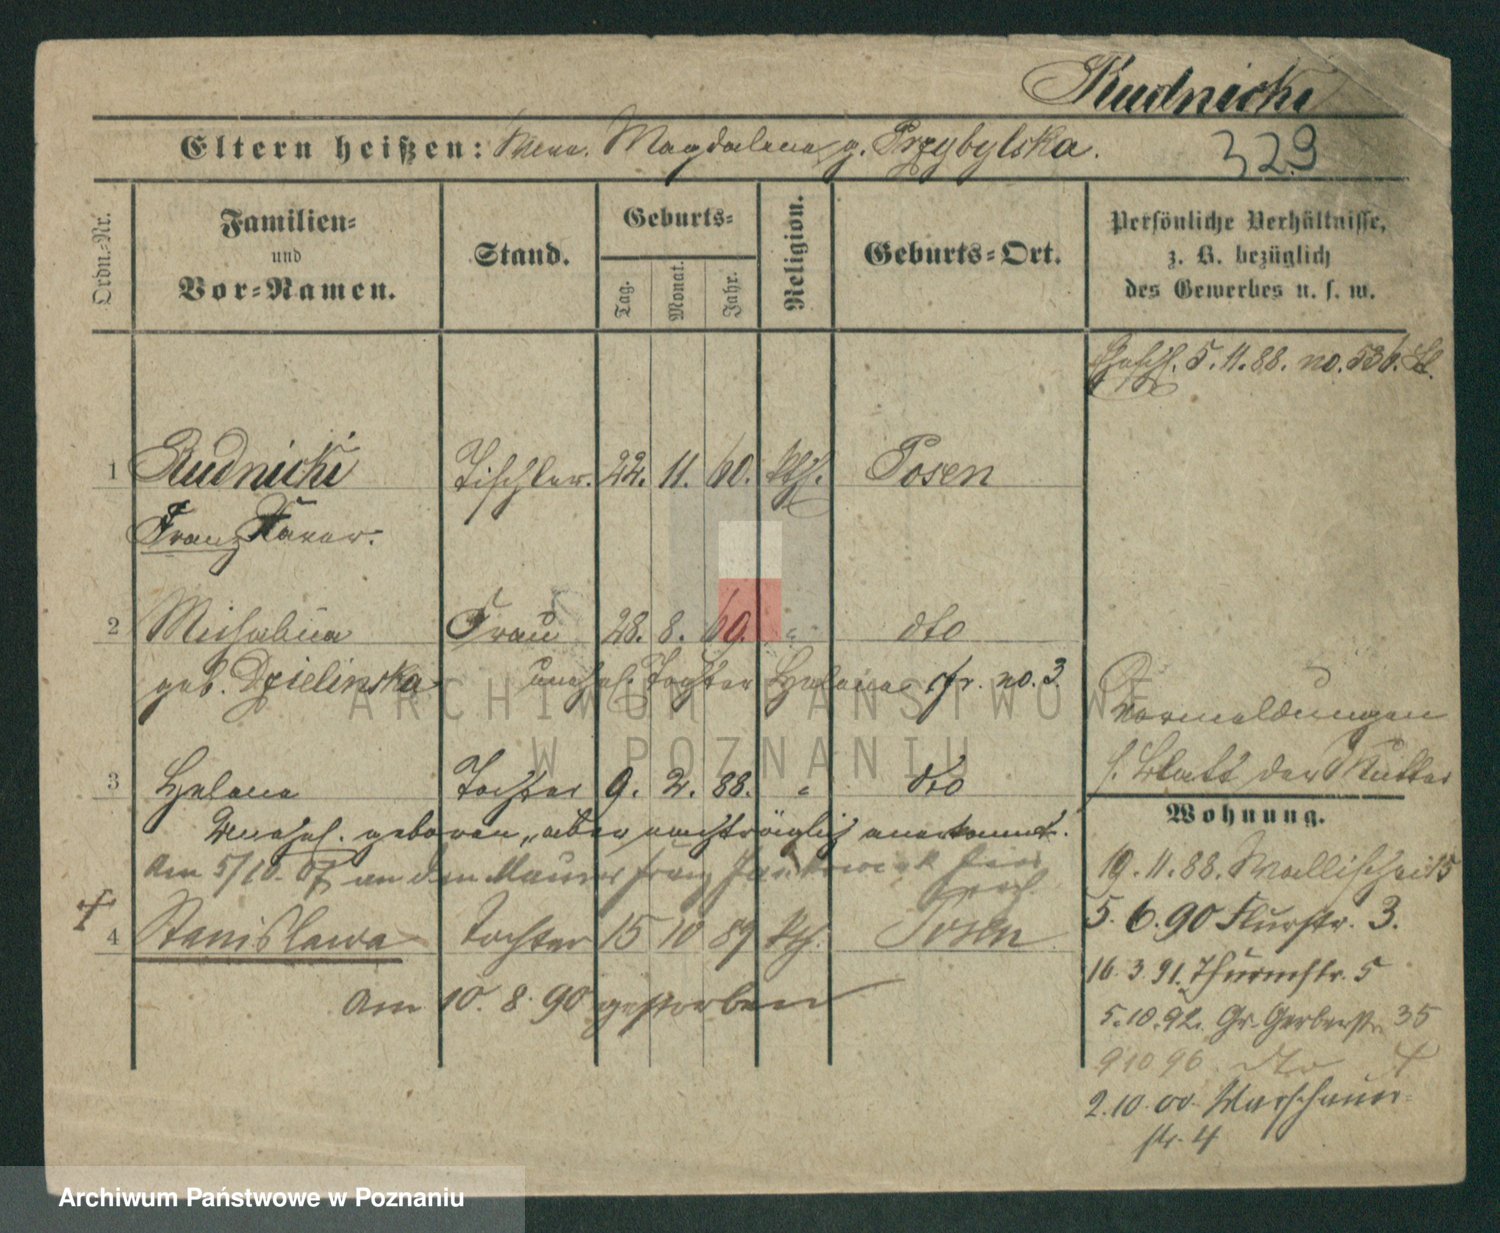 Rudnicki
Eltern heißen: Magdalena g. Przybylska.
329
Ordn.-Nr.
Familien-
und
Vor-Namen.
Stand.
Geburts-
Tag.
Monat.
Jahr.
Religion.
Geburts-Ort.
Persönliche Verhältnisse,
z. B. bezüglich
des Gewerbes u. s. w.
5.11.88. no. 536.
1 Rudnicki Tischler. 22. 11. 60. kth. Posen
Franz Xaver.
2 Michalina Frau 28. 8. 60. " dto
geb. Dzielinska unehel. Tochter Helena fr. no. 3.
Vermeldungen
s. Blatt der Mutter
3 Helena Tochter 9. 2. 88. " dto
Unehel. geboren, aber nachträglich anerkannt.
Am 5/10. 07 an den Maurer Franz
4 Stanislawa Tochter 15 10 89 kth. Posen
am 10. 8. 90 gestorben
Wohnung.
19.11.88. Wallischei 15
5. 6. 90 Flurstr. 3.
16. 3. 91. Thurmstr. 5
5.10.92. Gr. Gerberstr. 35
9 10 96. dto
2.10.00. Warschauer-
str. 4
ARCHIWUM PAŃSTWOWE
W POZNANIU
Archiwum Państwowe w Poznaniu